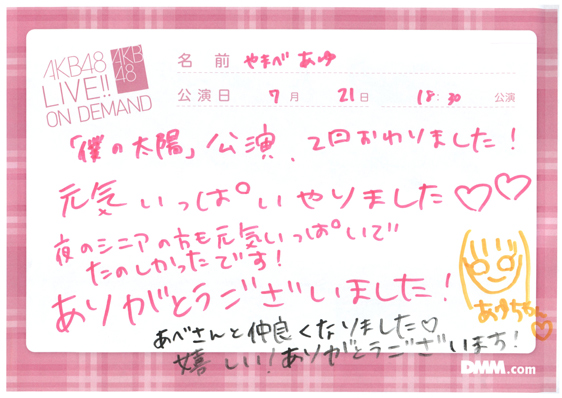 AKB48
LIVE!!
ON DEMAND
AKB
48
名前 やまべ あゆ
公演日 7月 21日 18:30 公演
「僕の太陽」公演、2回おわりました!
元気いっぱいやりました♡♡
夜のシニアの方も元気いっぱいで
たのしかったです!
ありがとうございました!
あゆちゃん♡
あべさんと仲良くなりました♡
嬉しい!ありがとうございます!
DMM.com